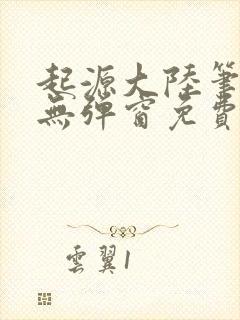 起源大陸筆
無彈窗免費
雲翼1